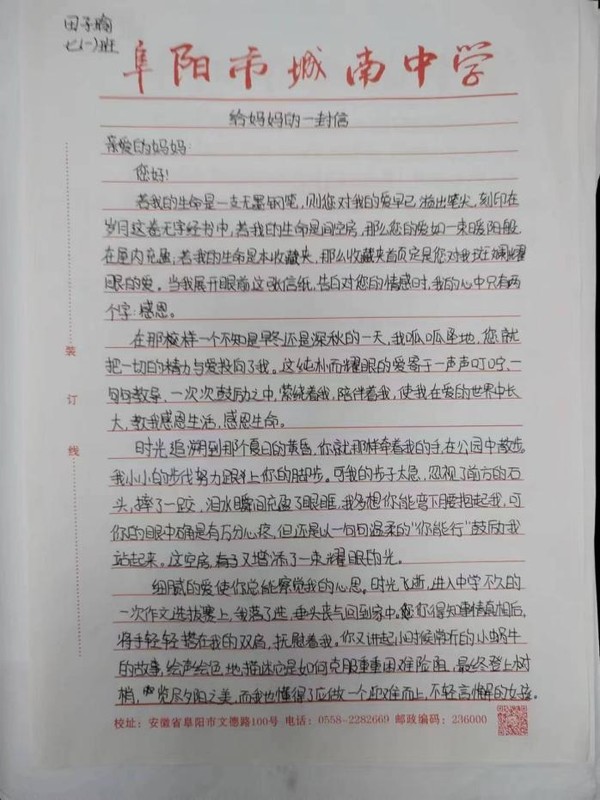 田子
七(一)班
阜阳市城南中学
给妈妈的一封信
亲爱的妈妈:
您好!
若我的生命是一支无墨钢笔,则您对我的爱早已溢出笔尖,刻印在
岁月这卷无字经书中,若我的生命是间空房,那么您的爱如一束暖阳般
在屋内充盈,若我的生命是本收藏夹,那么收藏夹首页定是您对我斑斓耀
眼的爱。当我展开眼前这张信纸,告白对您的情感时,我的心中只有两
个字:感恩。
在那模样一个不知是早冬还是深秋的一天,我呱呱坠地,您就
把一切的精力与爱投向了我。这纯朴而耀眼的爱寄于一声声叮咛、一
句句教导、一次次鼓励之中,萦绕着我,陪伴着我,使我在爱的世界中长
大,教我感恩生活,感恩生命。
时光追溯到那个夏日的黄昏,你就那样牵着我的手,在公园中散步。
我小小的步伐努力跟上你的脚步。可我的步子太急,忽视了前方的石
头,摔了一跤,泪水瞬间充盈了眼眶,我多想你能弯下腰抱起我,可
你的眼中确是有万分心疼,但还是以一句句温柔的“你能行”鼓励我
站起来。这空房子又增添了一束耀眼的光。
细腻的爱使你总能察觉我的心思。时光飞逝,进入中学不久的
一次作文选拔赛上,我落了选,垂头丧气回到家中。您得知事情真相后,
将手轻轻搭在我的双肩,抚慰着我。你又讲起小时候常听的小蜗牛
的故事,绘声绘色地描述它是如何克服重重困难险阻,最终登上树
梢,览尽夕阳之美,而我也懂得了应做一个迎难而上,不轻言懈的女孩。
装
订
线
校址:安徽省阜阳市文德路100号 电话:0558-2282669 邮政编码:236000